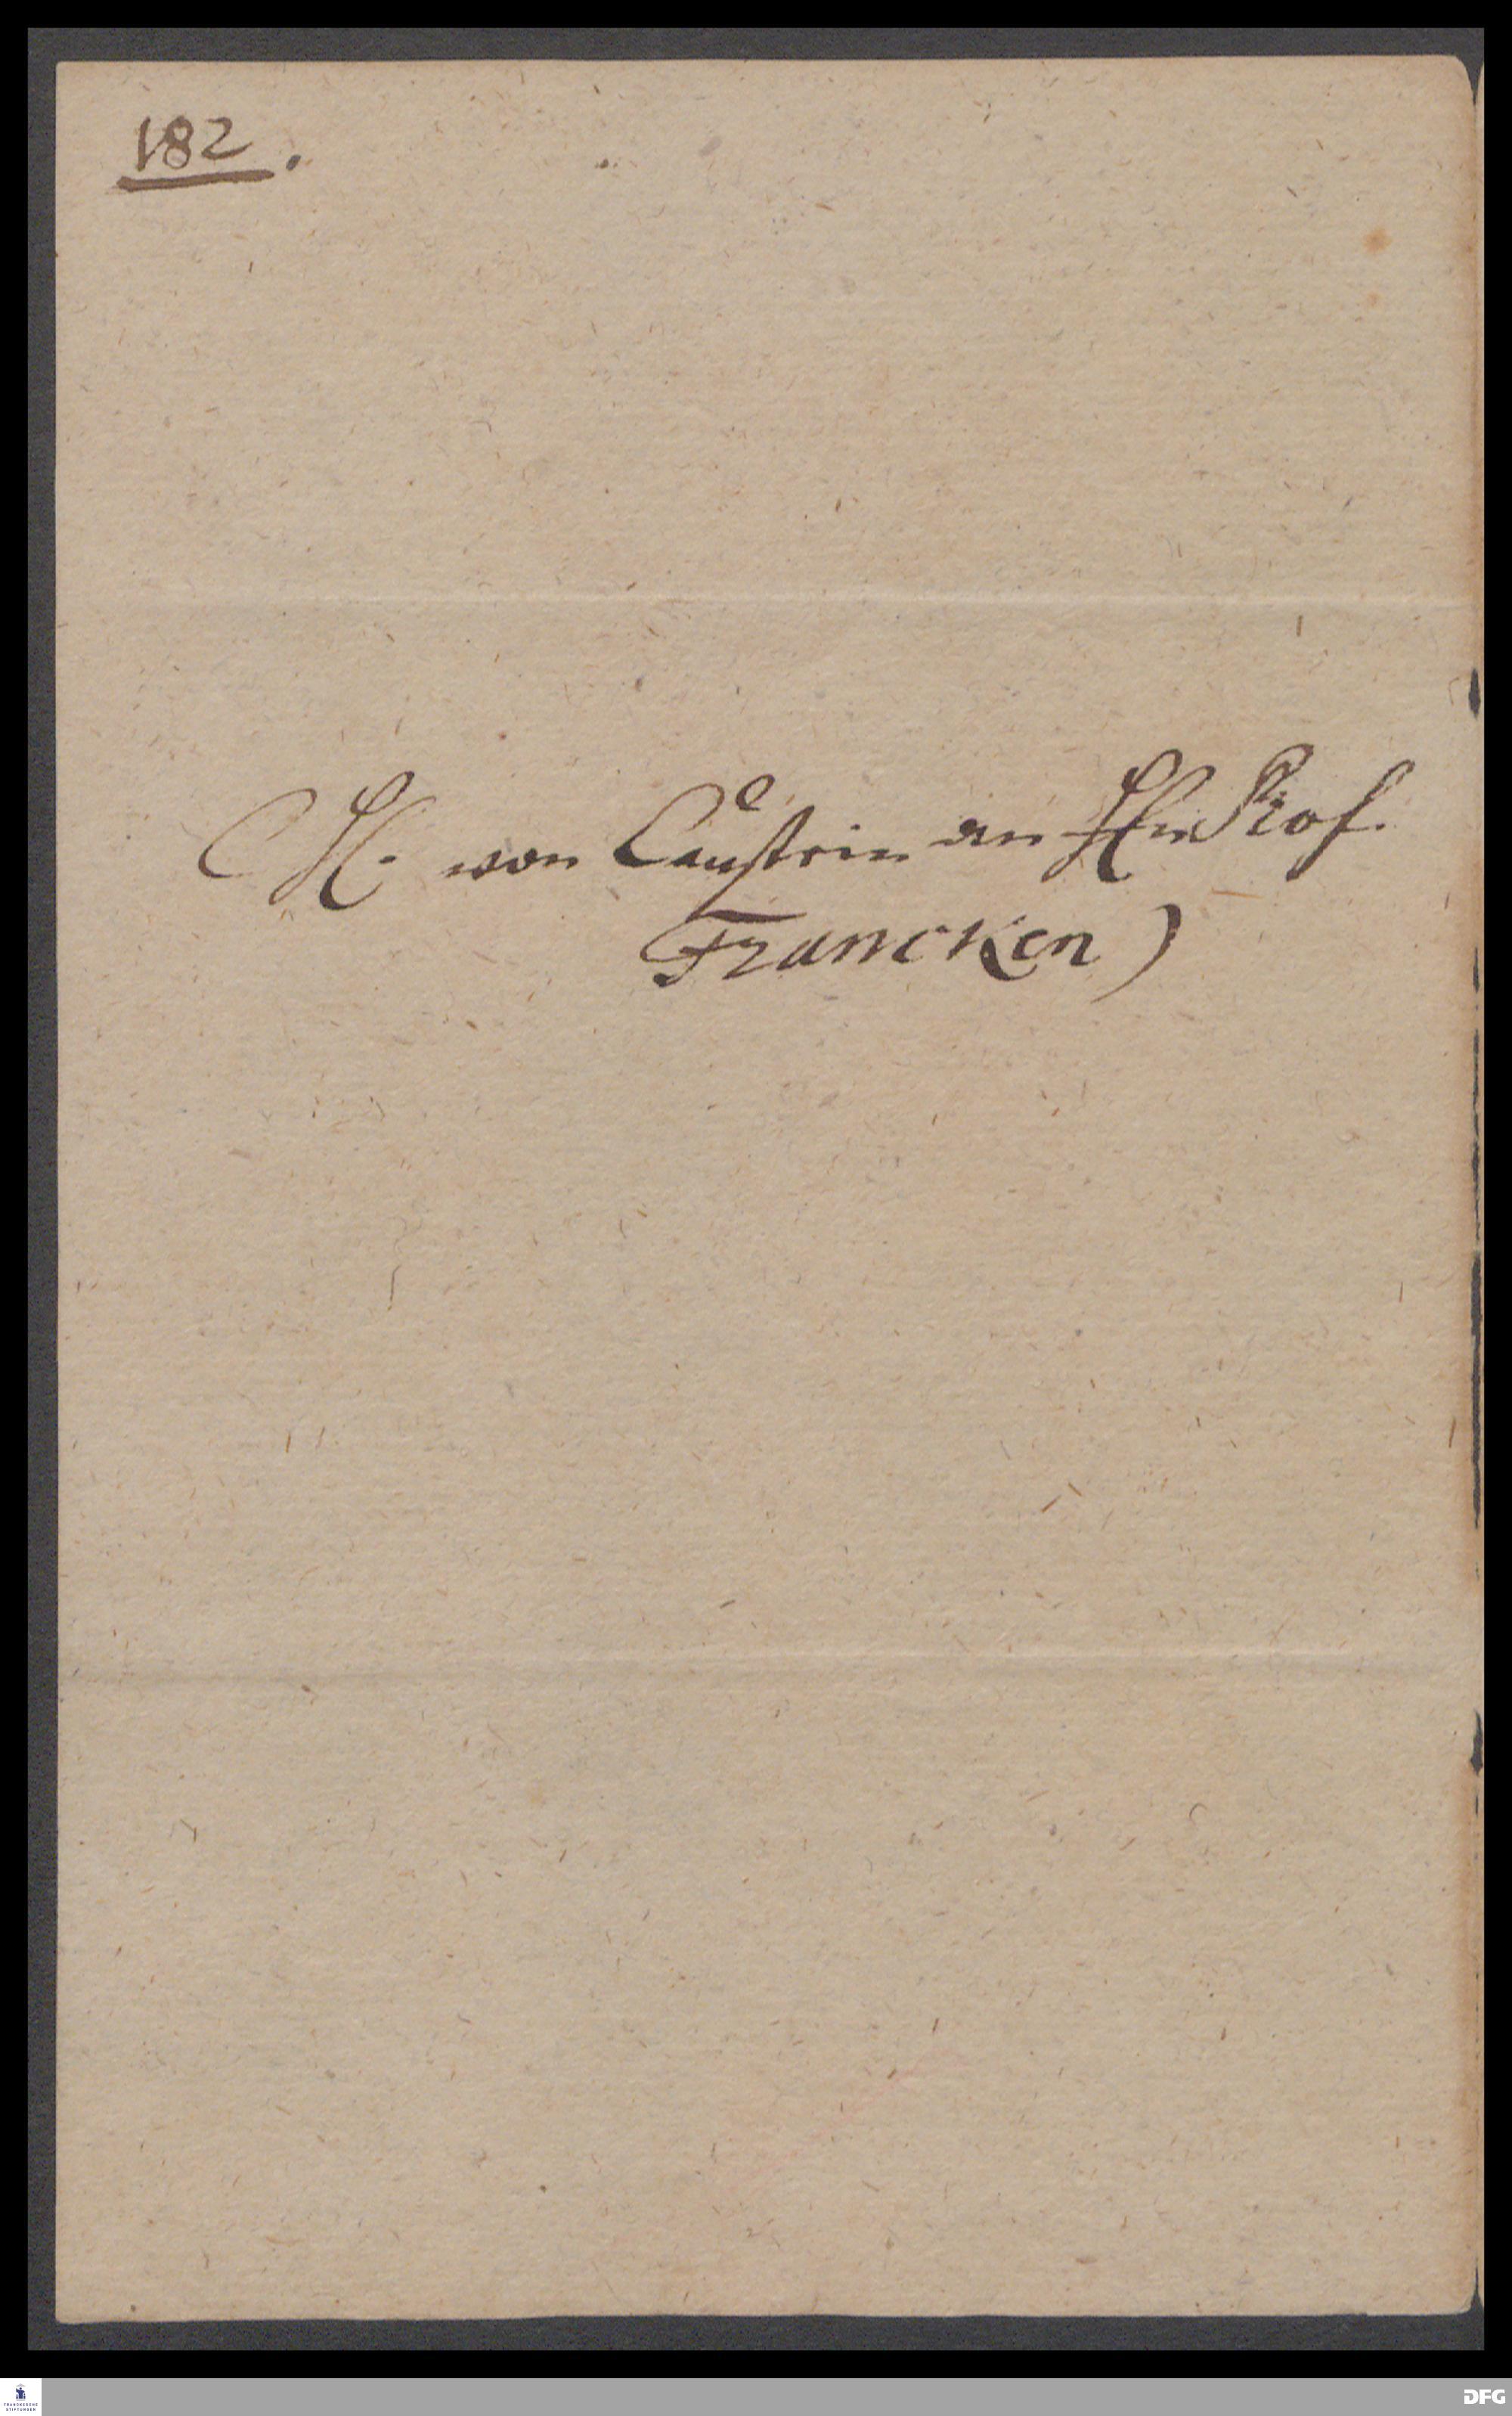 182.
(H. von Caustein an Hn Prof.
Francken)
FRANCKESCHE
STIFTUNGEN
DFG